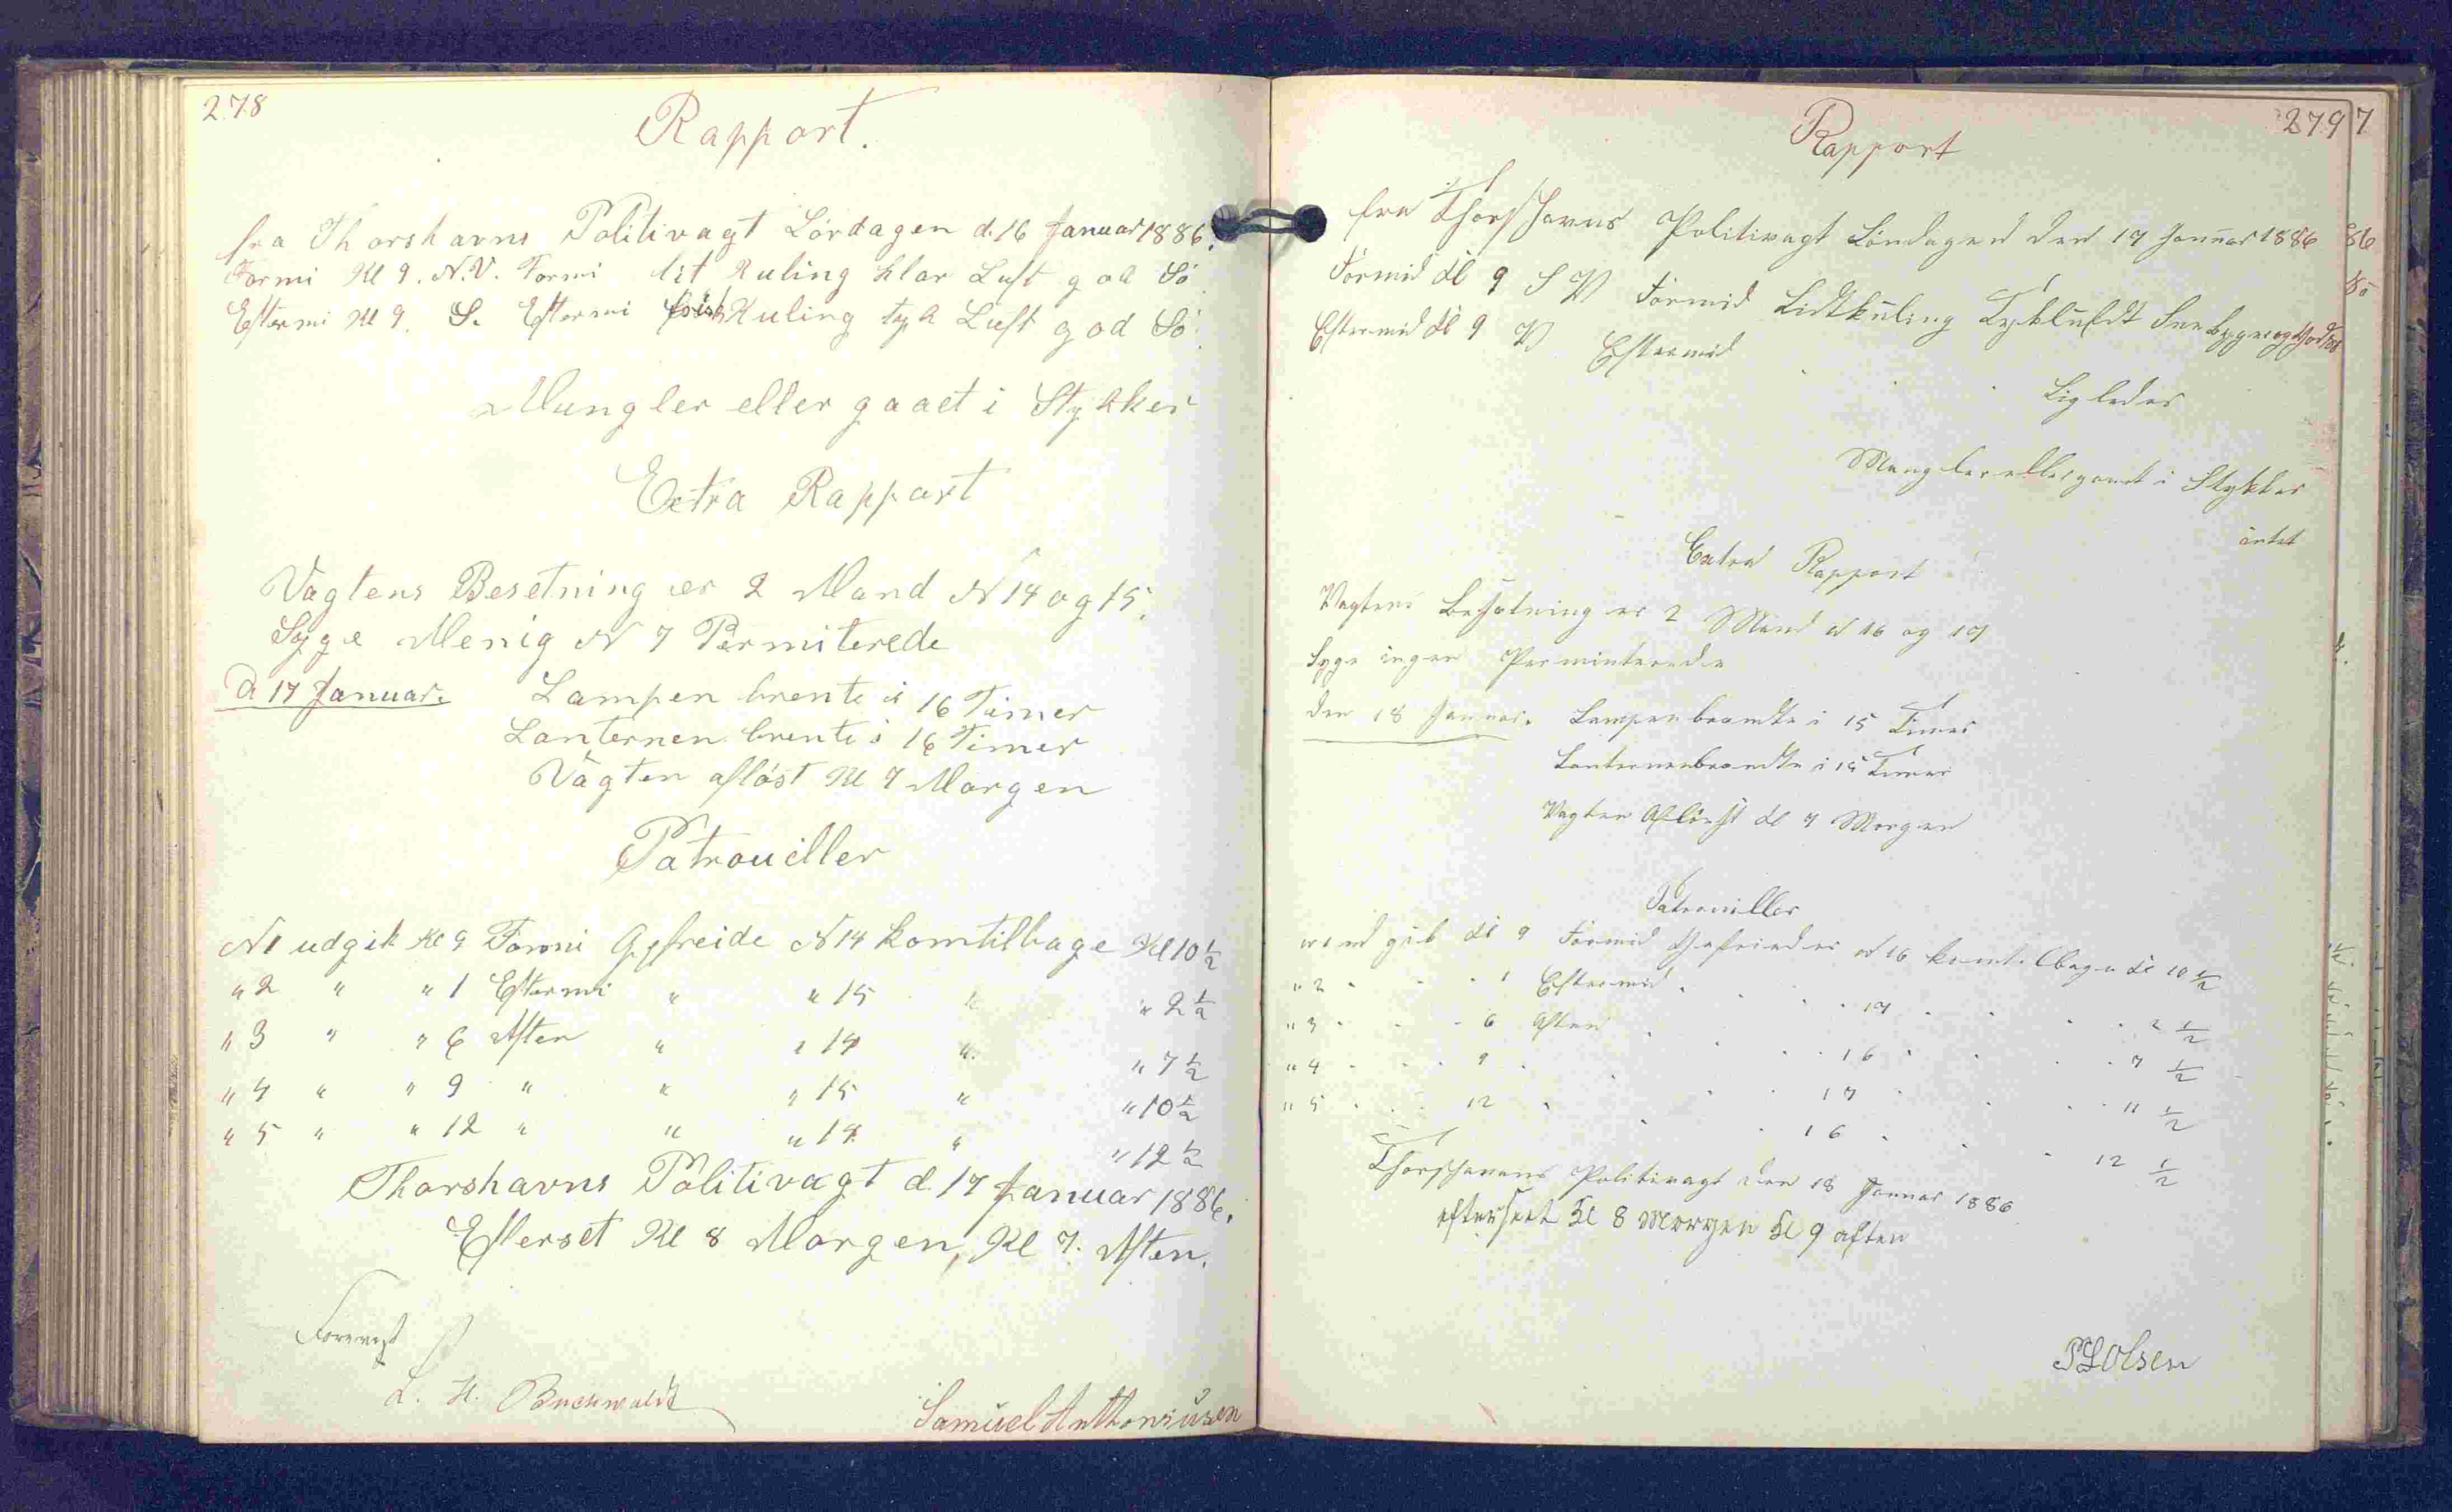 278
Rapport.
fra Thorshavns Politivagt Lørdagen d. 16 Januar 1886.
Formi Kl 9. N.V. Formi lit Kuling klar Luft god Sö
Eftermi Kl 9. S. Eftermi frisk Kuling tyk Luft god Sö.
Mangler eller gaaet i Stykker
Extra Rapport
Vagtens Besetning er 2 Mand N 14 og 15.
Syge Menig N 7 Permiterede
d. 17 Januar. Lampen brente i 16 Timer
Lanternen brente i 16 Timer
Vagten afløst Kl 7 Morgen
Patrouiller
N1 udgik Kl 9 Formi Gefreide N 14 kom tilbage Kl 10 1/2
" 2 " " 1 Eftermi " " 15 " " 2 1/2
" 3 " " 6 Aften " " 14 " " 7 1/2
" 4 " " 9 " " " 15 " " 10 1/2
" 5 " " 12 " " " 14 " " 12 1/2
Thorshavns Politivagt d. 17 Januar 1886.
Efterset Kl 8 Morgen, Kl 7. Aften.
Forevist
L. H. Buchwaldt
Samuel Anthoniusen
279
Rapport
fra Thorshavns Politivagt Söndagen den 17 Januar 1886
Formid Kl 9 S V Formid Lidt küling Tyk lüfdt Snebyger og god
Eftermid Kl 9 V Eftermid
Ligledes
Mangler eller gaaet i Stykker
intet
Extra Rapport
Vagtens Besætning er 2 Mand N 16 og 17
Syge ingen Perminterede
den 18 Januar. Lampen brendte i 15 Timer
Lanternen brendte i 15 Timer
Vagten Aflöst Kl 7 Morgen
Patrouiller
N 1 ud gik Kl 9 Formid Gefreider N 16 kom tilbage Kl 10 1/2
" 2 " " 1 Eftermid " " 17 " " 2 1/2
" 3 " " 6 Aften " " 16 " " 7 1/2
" 4 " " 9 " " " 17 " " 11 1/2
" 5 " " 12 " " " 16 " " 12 1/2
Thorshavns Politivagt den 18 Januar 1886
efterseet Kl 8 Morgen Kl 9 aften
P L Olsen
7
86